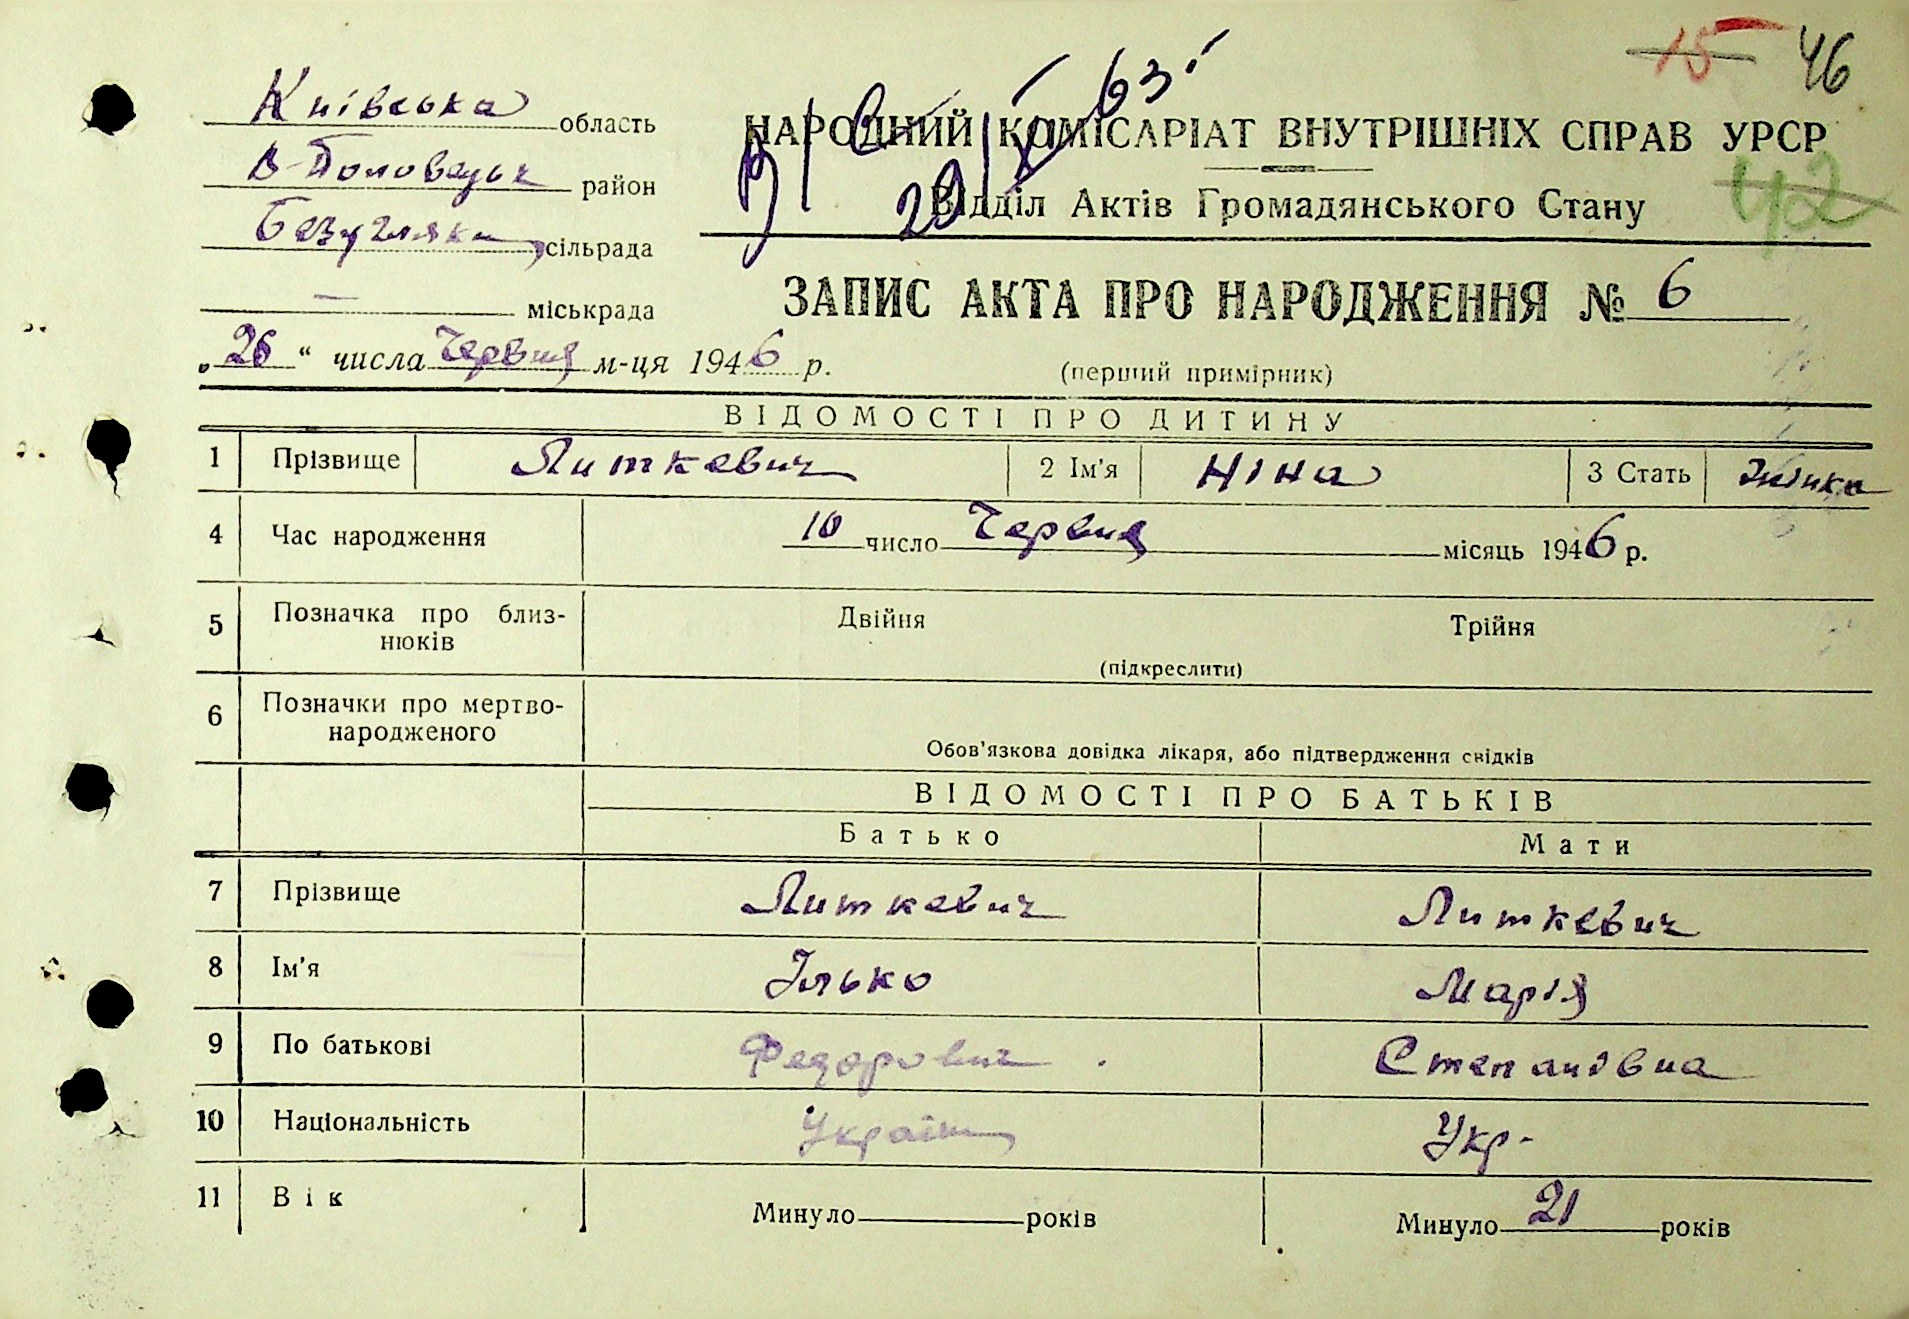 15 46
Київська область
НАРОДНИЙ КОМІСАРІАТ ВНУТРІШНІХ СПРАВ УРСР
В-Половецьк район
Відділ Актів Громадянського Стану 42
Безугляки сільрада
міськрада
ЗАПИС АКТА ПРО НАРОДЖЕННЯ № 6
„26“ числа Червня м-ця 1946 р.
(перший примірник)
ВІДОМОСТІ ПРО ДИТИНУ
1 Прізвище Литкевич 2 Ім'я Ніна 3 Стать Жінка
4 Час народження 10 число Червня місяць 1946 р.
5 Позначка про близ-
нюків Двійня Трійня
(підкреслити)
6 Позначки про мертво-
народженого
Обов'язкова довідка лікаря, або підтвердження свідків
ВІДОМОСТІ ПРО БАТЬКІВ
Батько Мати
7 Прізвище Литкевич Литкевич
8 Ім'я Ілько Марія
9 По батькові Федорович Степанівна
10 Національність Україн Укр-
11 Вік Минуло років Минуло 21 років